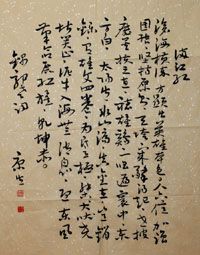 满江红
沧海横流方显出英雄本色人六亿加强
团结坚持原则天垮下来擎得起世披
靡矣扶之直听雄鸡一唱遍寰中东
方白太阳出冰山滴真金在岂销
铄有雄文四卷为民立极桀犬吠尧
堪笑止泥牛入海无消息迎东风
革命展红旗乾坤赤